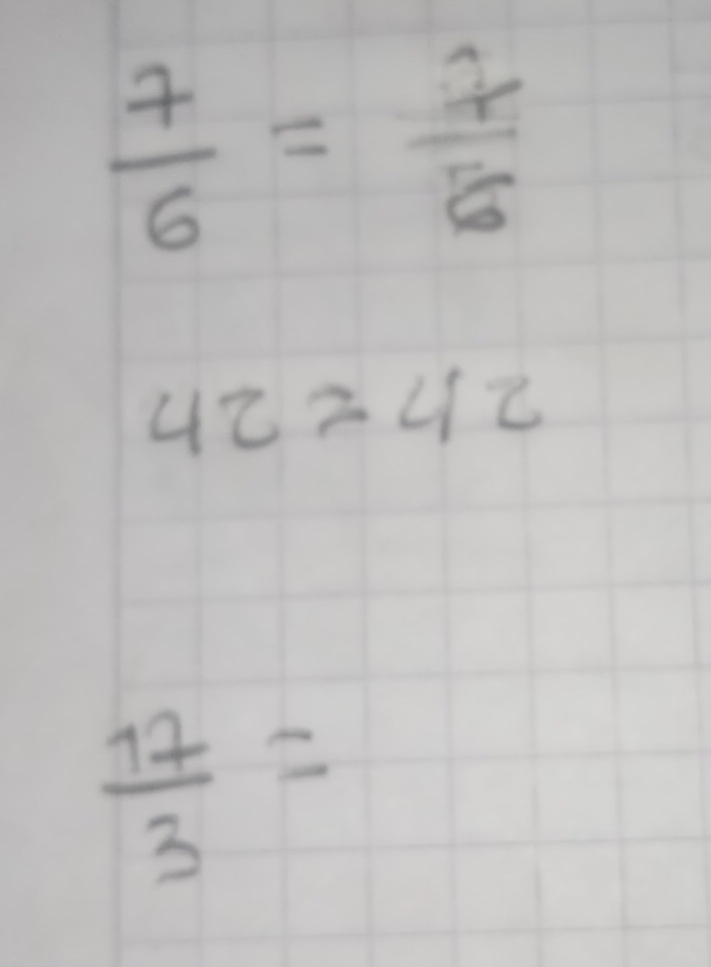 7/6 = 7/6
42 = 42
17/3 =